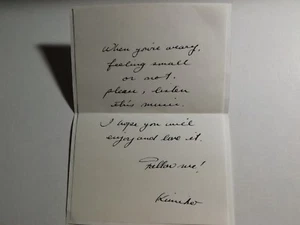 When you're weary,
feeling small
or not.
please, listen
this music.
I hope you will
enjoy and love it.
me!
Kimiko